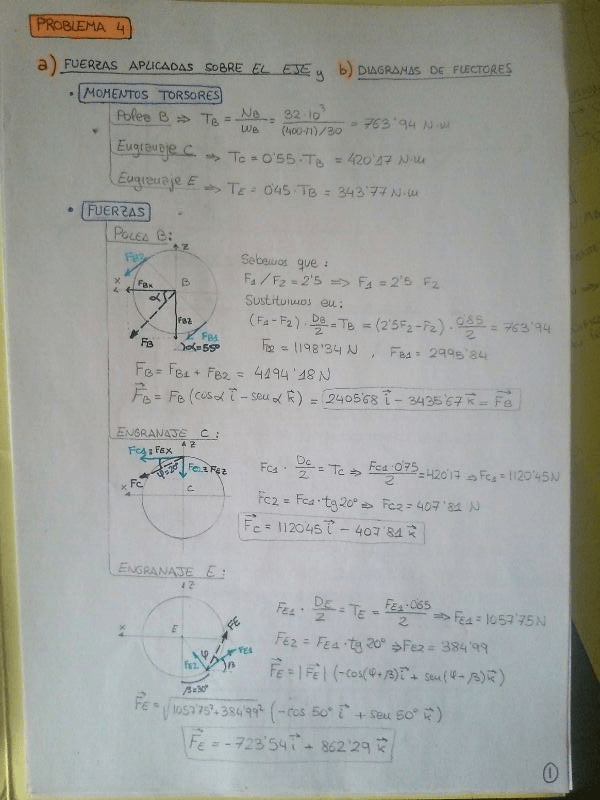 PROBLEMA 4
a) FUERZAS APLICADAS SOBRE EL EJE y b) DIAGRAMAS DE FLECTORES
• MOMENTOS TORSORES
Polea B ⇒ TB = NB / WB = 32·10³ / (400·π)/30 = 763'94 N·m
Engranaje C ⇒ TC = 0'55 · TB = 420'17 N·m
Engranaje E ⇒ TE = 0'45 · TB = 343'77 N·m
• FUERZAS
POLEA B:
Z
FB2
X
FBX
B
α
FBZ
FB
FB1
α=55º
Sabemos que:
F1/F2 = 2'5 ⇒ F1 = 2'5 F2
Sustituimos en:
(F1-F2) · DB/2 = TB = (2'5F2-F2) · 0'85/2 = 763'94
FB2 = 1198'34 N , FB1 = 2995'84
FB = FB1 + FB2 = 4194'18 N
F⃗B = FB (cosα i⃗ - senα k⃗) = 2405'68 i⃗ - 3435'67 k⃗ = F⃗B
ENGRANAJE C:
Z
FC1=FEX
φ=20º
FC2=FEZ
FC
X
C
FC1 · DC/2 = TC ⇒ FC1·0'75/2 = 420'17 ⇒ FC1 = 1120'45N
FC2 = FC1 · tg 20º ⇒ FC2 = 407'81 N
F⃗C = 1120'45 i⃗ - 407'81 k⃗
ENGRANAJE E:
Z
X
E
FE
FE2
φ
FE1
β
β=30º
FE1 · DE/2 = TE = FE1·0'65/2 ⇒ FE1 = 1057'75N
FE2 = FE1 · tg 20º ⇒ FE2 = 384'99
F⃗E = |F⃗E| (-cos(φ+β) i⃗ + sen(φ-β) k⃗)
F⃗E = √1057'75²+384'99² (-cos 50º i⃗ + sen 50º k⃗)
F⃗E = -723'54 i⃗ + 862'29 k⃗
1